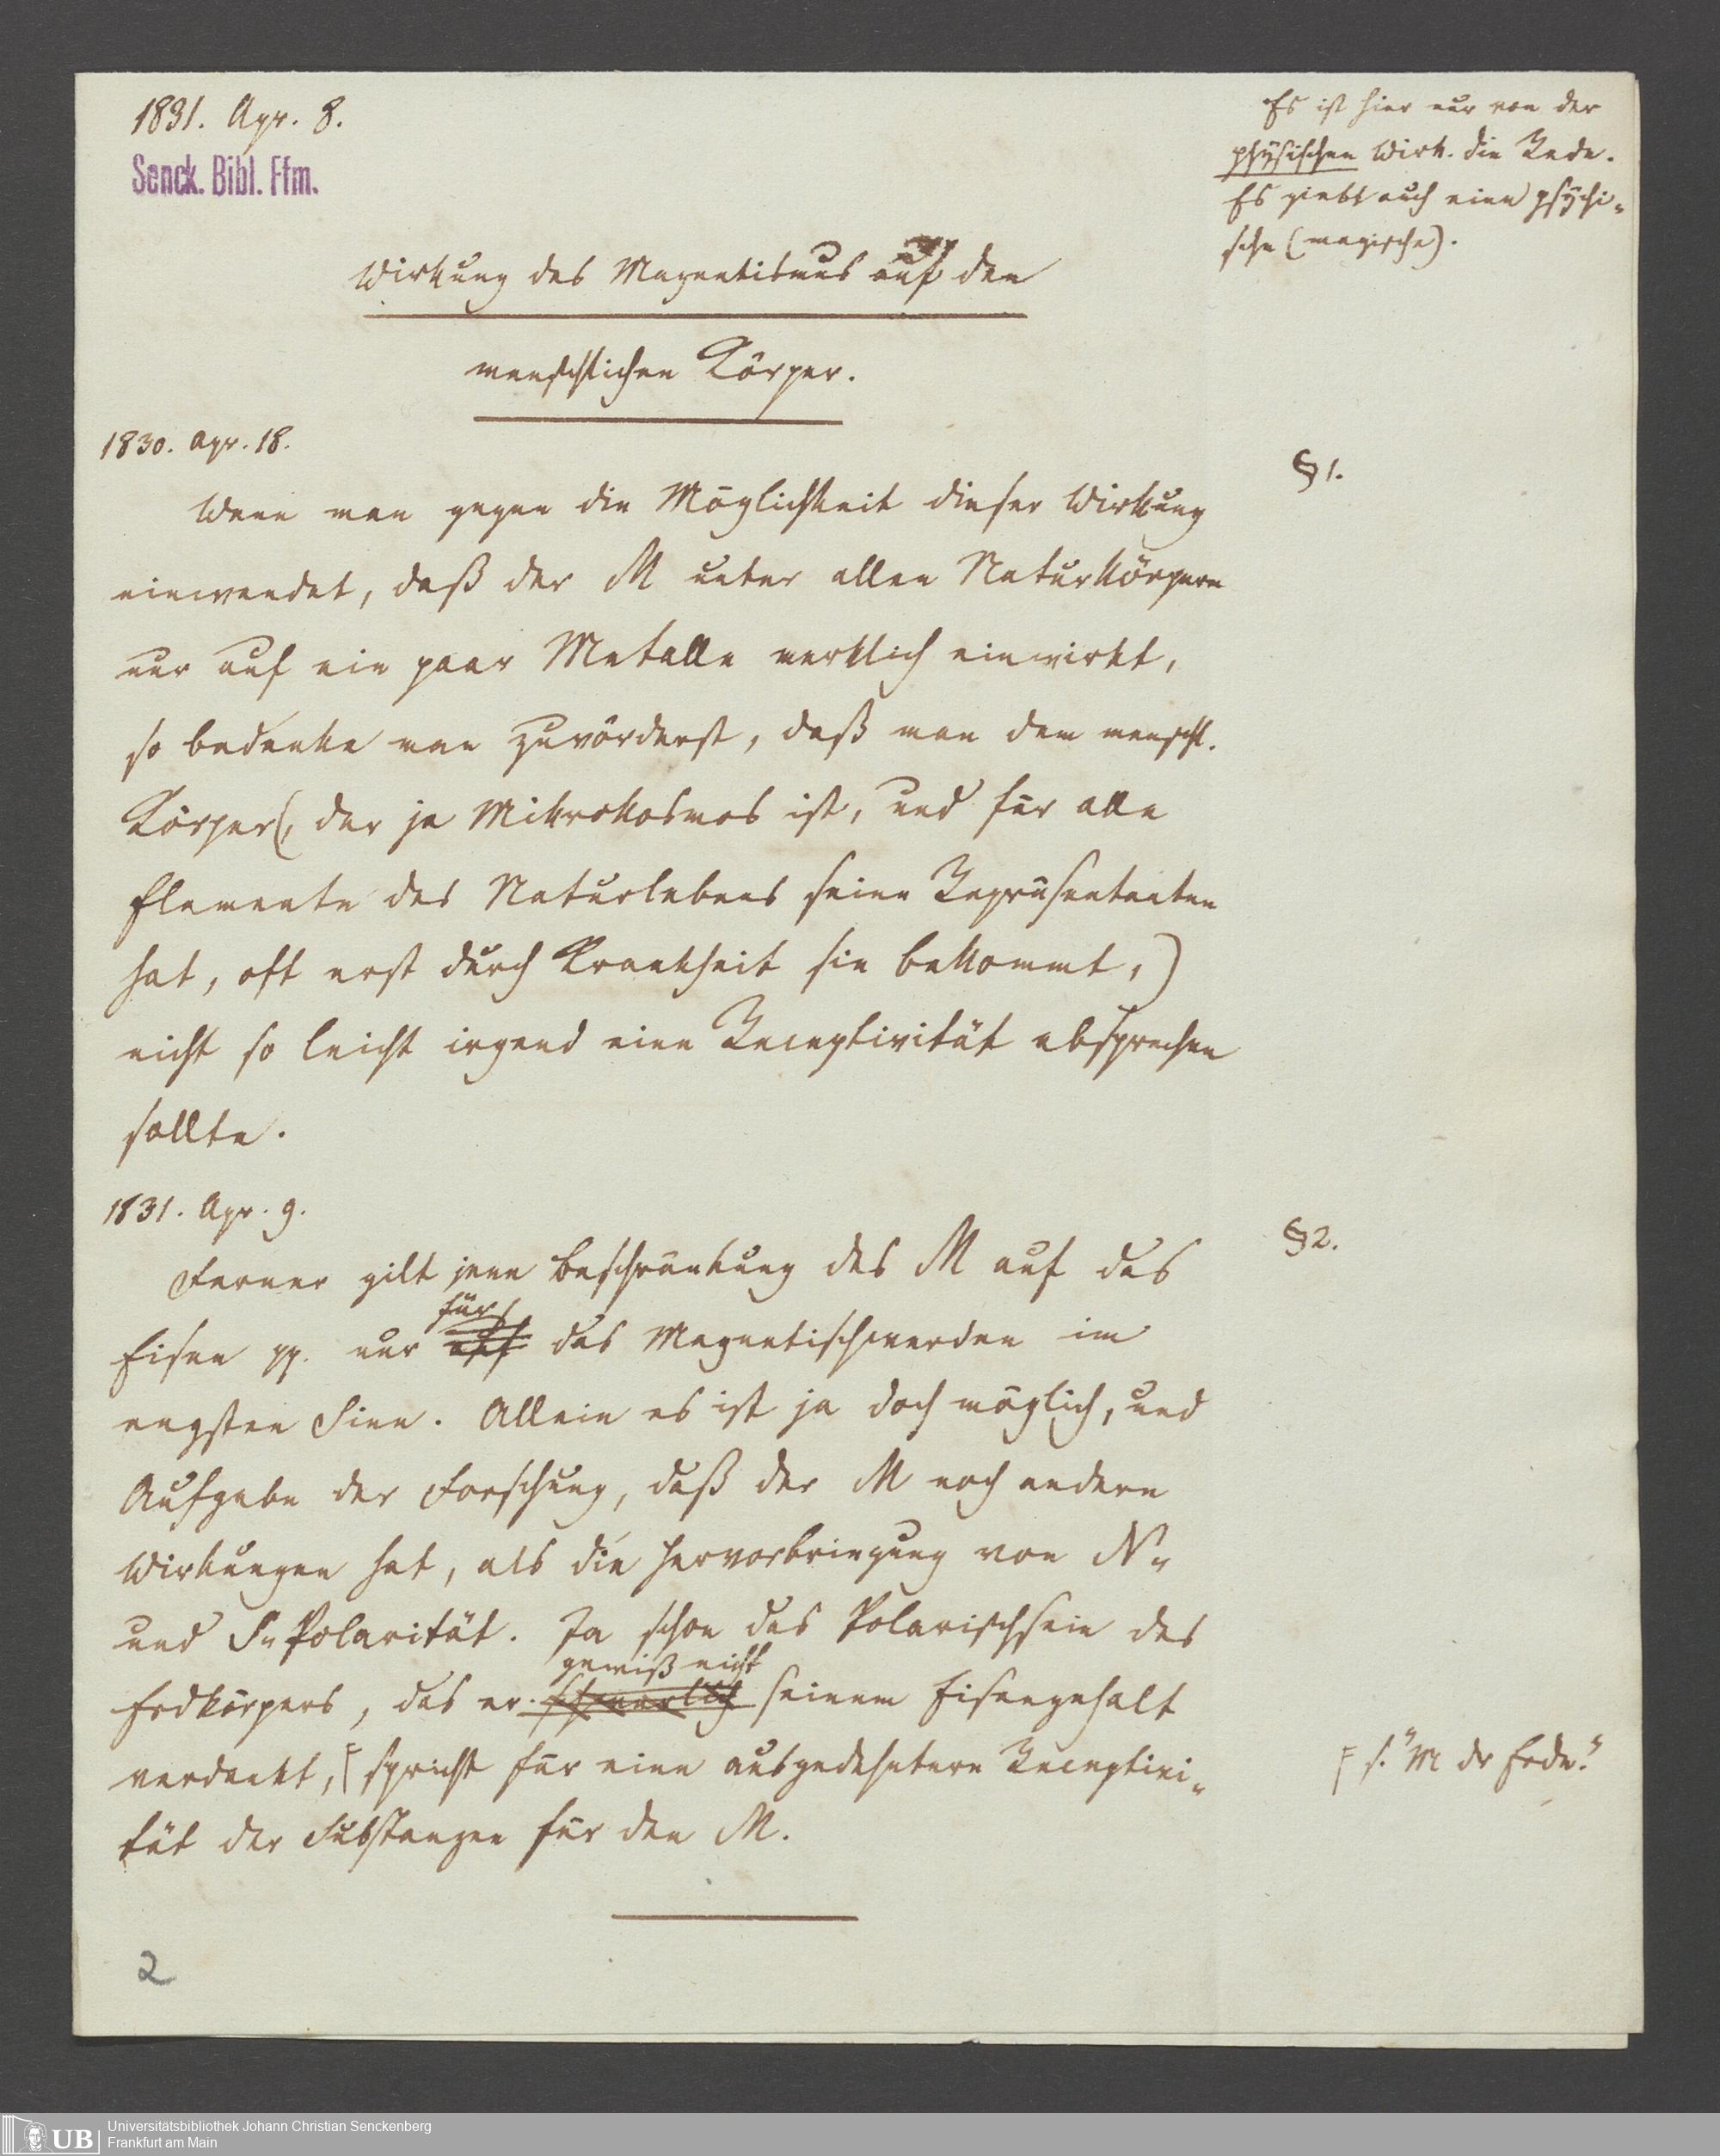 1831. Apr. 8.
Senck. Bibl. Ffm.
Es ist hier nur von der
physischen Wirk. die Rede.
Es giebt auch eine psychi-
sche (magische).
Wirkung des Magnetismus auf den
menschlichen Körper.
1830. Apr. 18.
§ 1.
Wenn man gegen die Möglichkeit dieser Wirkung
einwendet, daß der M unter allen Naturkörpern
nur auf ein paar Metalle merklich einwirkt,
so bedenke man zuvörderst, daß man dem menschl.
Körper (, der ja Mikrokosmos ist, und für alle
Elemente des Naturlebens seine Repräsentanten
hat, oft erst durch Krankheit sie bekommt,)
nicht so leicht irgend eine Receptivität absprechen
sollte.
1831. Apr. 9.
§ 2.
Ferner gilt jene Beschränkung des M auf das
für
Eisen pp. nur auf das Magnetischwerden im
engsten Sinn. Allein es ist ja doch möglich, und
Aufgabe der Forschung, daß der M noch andere
Wirkungen hat, als die Hervorbringung von N-
und S-Polarität. Ja schon das Polarischsein des
gewiß nicht
Erdkörpers, das er schwerlich seinem Eisengehalt
verdankt, spricht für eine ausgedehntere Receptivi-
s. "M der Erde."
tät der Substanzen für den M.
2
UB
Universitätsbibliothek Johann Christian Senckenberg
Frankfurt am Main